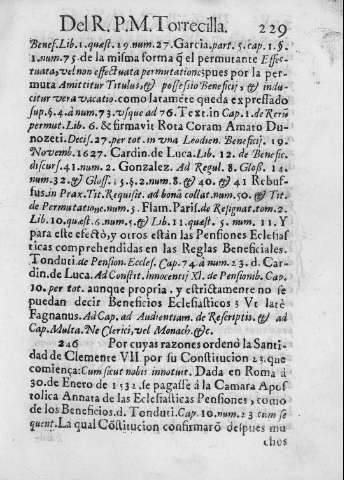 Del R. P. M. Torrecilla. 229
Benef. Lib. 1. quæst. 19. num. 27. Garcia. part. 5. cap. 1. §.
1. num. 75. de la misma forma q̃ el permutante Effec-
tuata, vel non effectuata permutatione; pues por la per-
muta Amittitur Titulus, & possessio Beneficij, & indu-
citur vera vacatio. como latamẽte queda expressado
sup. §. 4. à num. 73. vsque ad 76. Text. in Cap. 1. de Rerũ
permut. Lib. 6. & firmavit Rota Coram Amato Du-
nozeti. Decis. 27. per tot. in vna Leodien. Beneficij. 19.
Novemb. 1627. Cardin. de Luca. Lib. 12. de Benefic.
discurs. 41. num. 2. Gonzalez. Ad Regul. 8. Gloss. 14.
num. 32. & Gloss. 15. §. 2. num. 8. & 40. & 41 Rebuf-
fus. in Prax. Tit. Requisit. ad bonã collat. num. 50. & Tit.
de Permutatione. num. 5. Flam. Paris. de Resignat. tom. 2.
Lib. 10. quæst. 6. num. 5. & Lib. 11. quæst. 5. num. 11. Y
para este efectò, y otros están las Pensiones Eclesias
ticas comprehendidas en las Reglas Beneficiales.
Tonduti. de Pension. Eccles. Cap. 74. à num. 23. d. Car-
din. de Luca. Ad Constit. Innocentij XI. de Pensionib. Cap.
10. per tot. aunque propria, y estrictamente no se
puedan decir Beneficios Eclesiasticos; Vt latè
Fagnanus. Ad Cap. ad Audientiam. de Rescriptis. & ad
Cap. Multa. Ne Clerici, vel Monach. &c.
246 Por cuyas razones ordenò la Santi-
dad de Clemente VII. por su Constitucion 23. que
comiença: Cum sicut nobis innotuit. Dada en Roma á
30. de Enero de 1532. se pagasse á la Camara Apos
tolica Annata de las Eclesiasticas Pensiones, como
de los Beneficios. d. Tonduti. Cap. 10. num. 23 cum se
quent. La qual Cõstitucion confirmarõ despues mu
chos